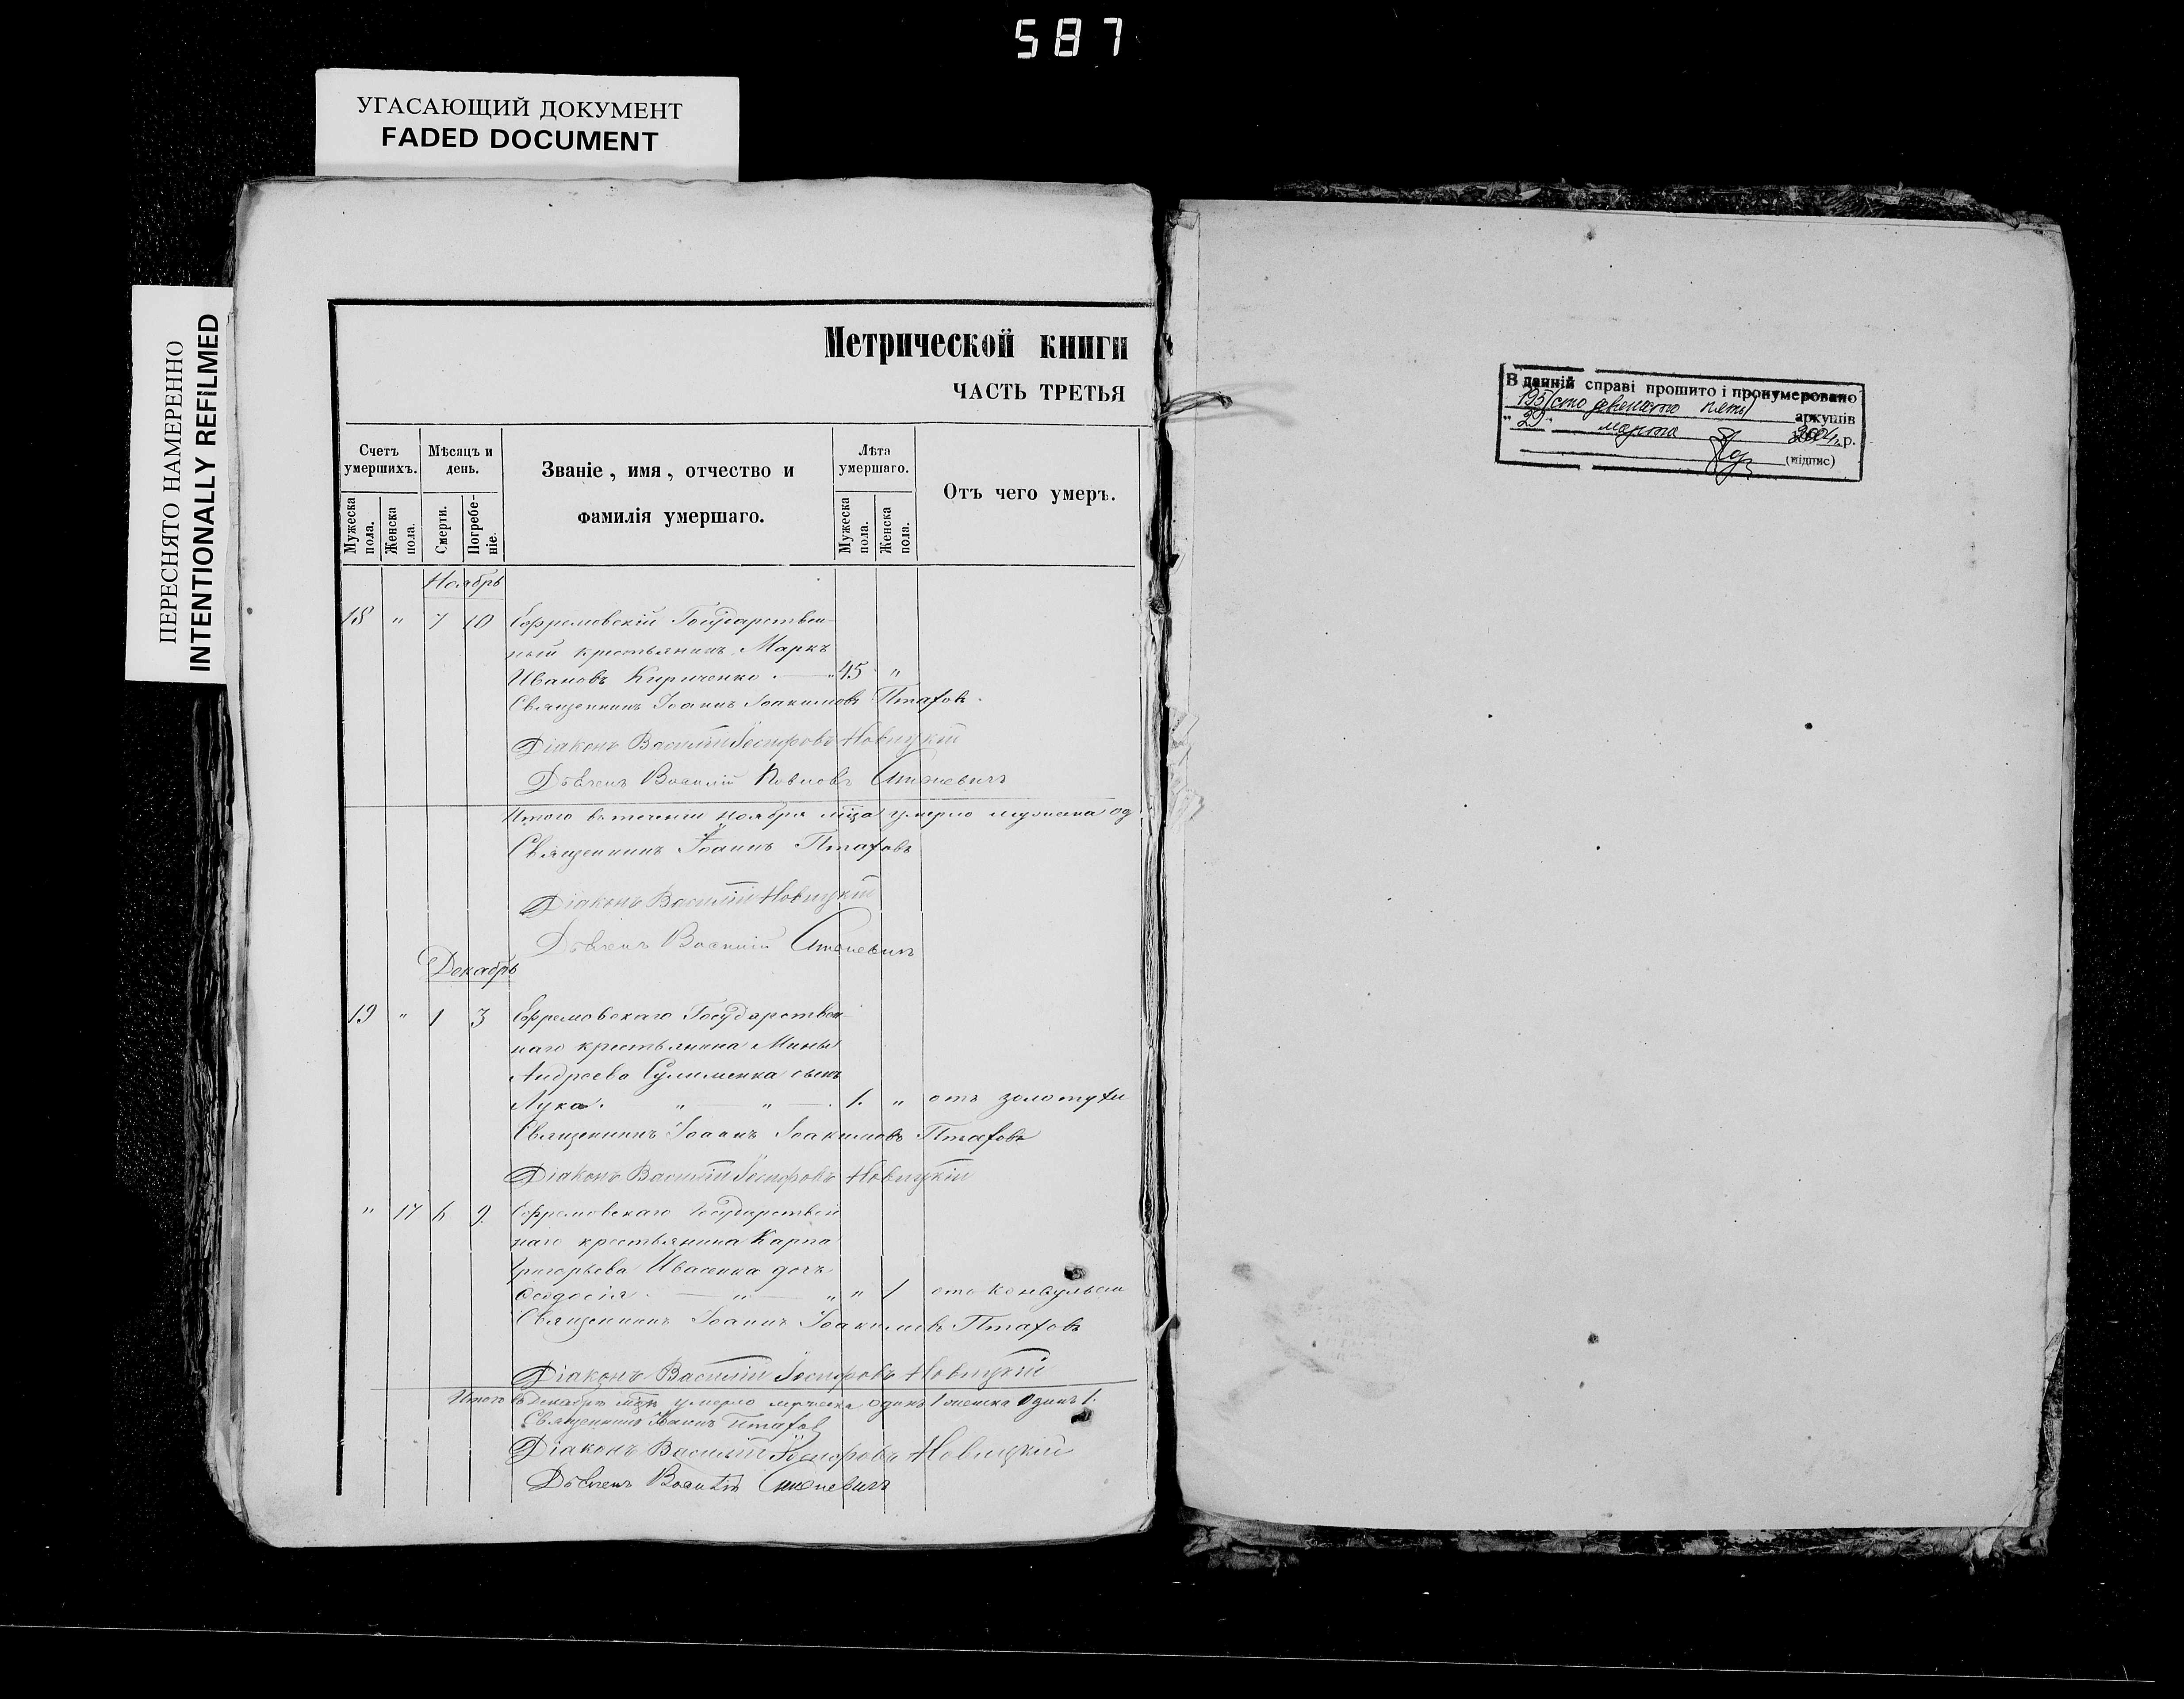 587
УГАСАЮЩИЙ ДОКУМЕНТ
FADED DOCUMENT
ПЕРЕСНЯТО НАМЕРЕННО
INTENTIONALLY REFILMED
Метрической книги
ЧАСТЬ ТРЕТЬЯ
Счетъ умершихъ.
Мужеска пола.
Женска пола.
Мѣсяцъ и день.
Смерти.
Погребеніе.
Званіе, имя, отчество и
фамилія умершаго.
Лѣта умершаго.
Мужеска пола.
Женска пола.
Отъ чего умеръ.
Ноябрь
18 " 7 10 Ефремовскій Государствен-
ный крестьянинъ Маркъ
Ивановъ Кириченко . — " 45 "
Священникъ Іоаннъ Іоакимовъ Птаховъ.
Діаконъ Василій Іосифовъ Новицкій
Василій
Итого въ теченіи ноября мца умерло мужеска од
Священникъ Іоаннъ Птаховъ
Діаконъ Василій Новицкій
Василій
Декабрь
19 " 1 3 Ефремовскаго Государствен-
наго крестьянина Мины
Андреева Сулименка сынъ
Лука. " — " — . 1. " отъ золотухи
Священникъ Іоаннъ Іоакимовъ Птаховъ
Діаконъ Василій Іосифовъ Новицкій
" 17 6 9. Ефремовскаго Государствен
наго крестьянина Карпа
Григорьева Ивасенка дочь
Ѳеодосія. — " — " " 1 отъ консульсіи
Священникъ Іоаннъ Іоакимовъ Птаховъ
Діаконъ Василій Іосифовъ Новицкій
Итого въ Декабрѣ мцѣ умерло мужеска одинъ 1 женска одинъ 1.
Священникъ Іоаннъ Птахов
Діаконъ Василій Іосифовъ Новицкій
Василій
В данній справі прошито і пронумеровано
195 (сто девяносто пять) аркушів
"29" марта 2004 р.
(підпис)